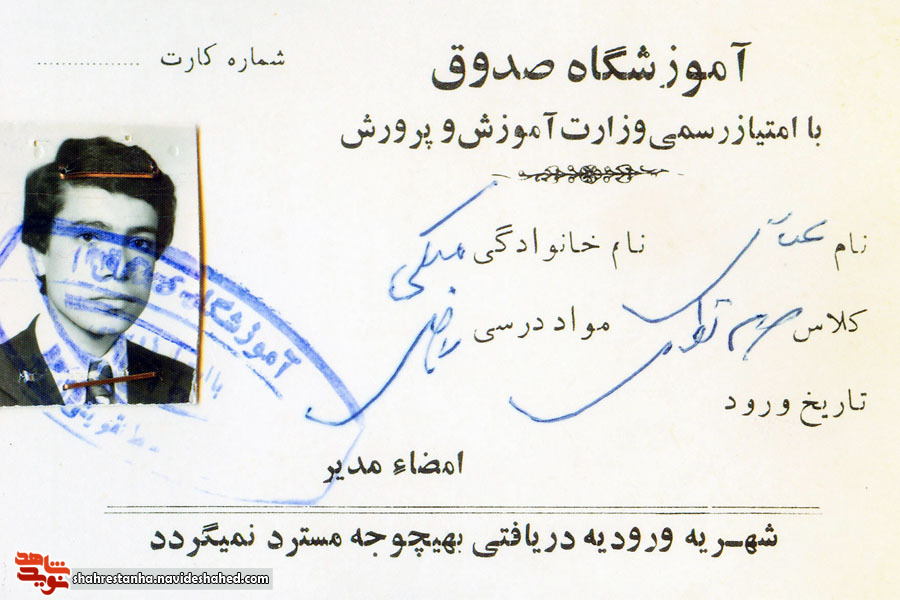 آموزشگاه صدوق
شماره کارت ................
با امتیاز رسمی وزارت آموزش و پرورش
نام عباس نام خانوادگی
کلاس مواد درسی ریاضی
تاریخ ورود
آموزشگاه
امضاء مدیر
شهریه ورودیه دریافتی بهیچوجه مسترد نمیگردد
نوید شاهد
shahrestanha.navideshahed.com